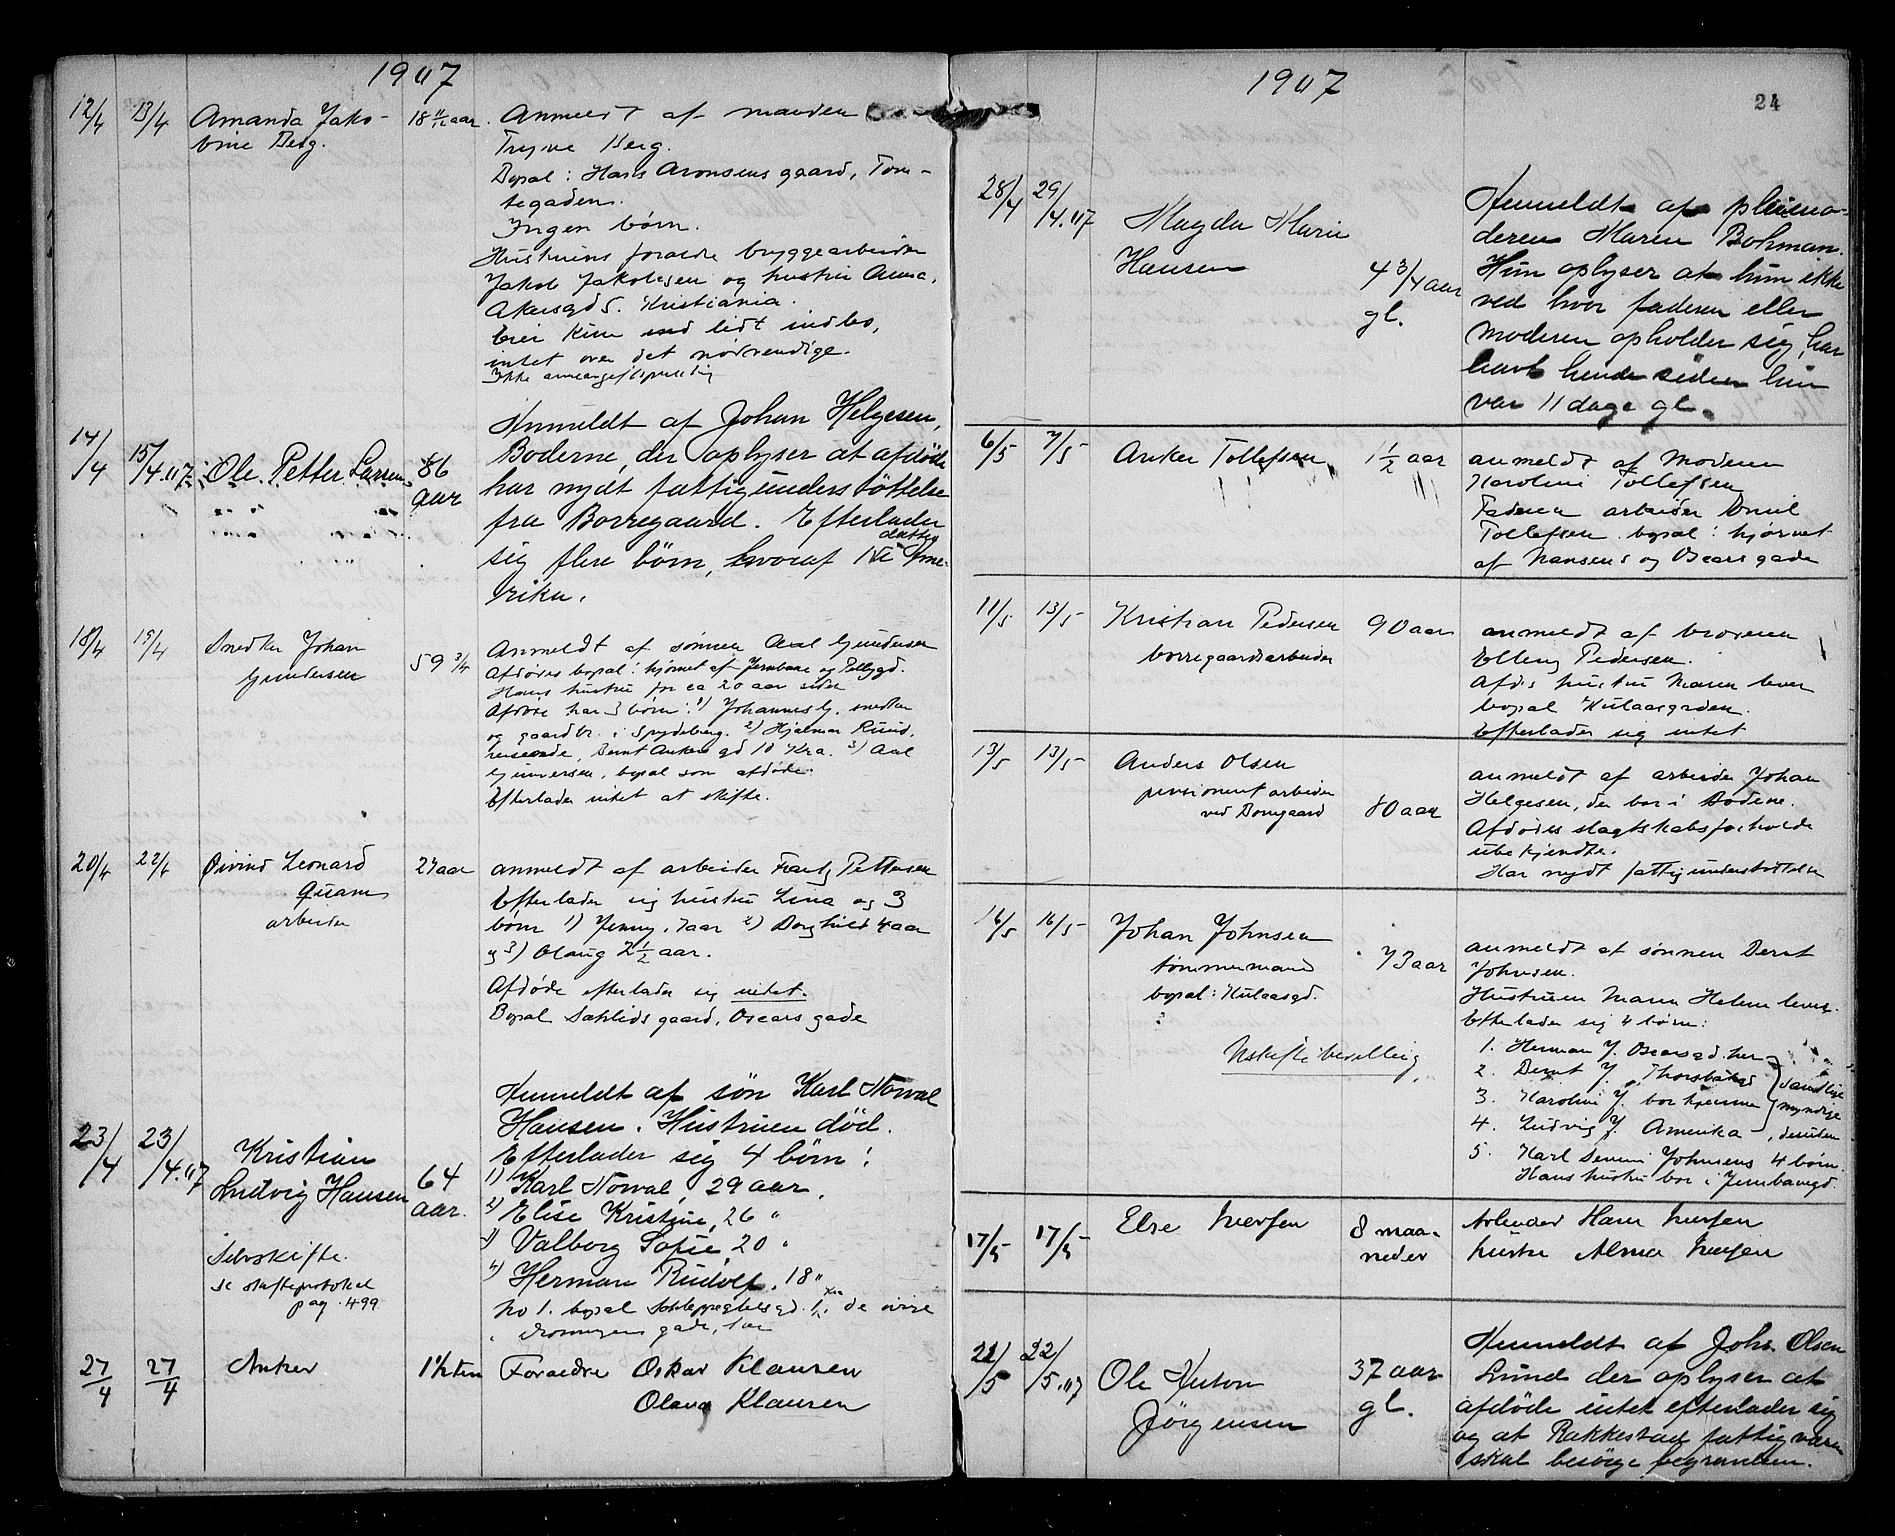 1907
12/4 13/4 Amanda Jako- 18 11/12 aar. Anmeldt af manden
bine Berg. Trygve Berg.
Bopal: Hans Aronsens gaard, Tom-
tegaden.
Ingen børn.
Hustruens foraldre bryggearbeider
Jakob Jakobsen og hustru Anna,
Akersgd 5. Kristiania.
Eier kun lidt indbo,
intet over det nødvendige.
Ikke
14/4 15/4.07 Ole Petter Larsen 86 aar
Anmeldt af Johan Helgesen,
Boderne, der oplyser at afdøde
har nydt fattigunderstøttelse
fra Borregaard. Efterlader
sig flere børn, hvoraf 1 datter i Ame-
rika.
18/4 19/4 Snedker Johan
Gundersen 59 3/4
Anmeldt af sønnen Axel Gundersen
Afdødes bopal: hjørnet af Jernbane og
Hans hustru for ca 20 aar siden
Afdøde har 3 børn: 1) Johannes G. snedker
og gaardbr. i Spydeberg. 2) Hjalmar Ruud,
Bernt Ankers gd 10 Kra. 3) Axel
Gundersen, bopal som afdøde.
Efterlader intet at skifte.
20/4 22/4 Øivind Leonard
Quam
arbeider
27 aar
anmeldt af arbeider Frantz Pettersen
Efterlader sig hustru Lina og 3
børn 1) Jenny, 7 aar 2) Borghild 4 aar
og 3) Olaug 2 1/2 aar.
Afdøde efterlader sig intet.
Bopal Sahlids gaard, Oscars gade
23/4 23/4.07 Kristian
Ludvig Hansen 64
aar.
Selvskifte.
Se skifteprotokol
pag. 499
Anmeldt af søn Karl Norval
Hansen. Hustruen død.
Efterlader sig 4 børn:
1) Karl Norval, 29 aar,
2) Elise Kristine, 26 "
3) Valborg Sofie 20 "
4) Herman Rudolf, 18 "
No 1. bopal de øvrige
Dronningens gade, her
27/4 27/4 Anker
Foraeldre Oskar Klausen
Olava Klausen
1907
24
28/4 29/4.07 Magda Marie
Hansen 4 3/4 aar
gl.
Anmeldt af pleiemo-
deren Maren Bohman.
Hun oplyser at hun ikke
ved hvor faderen eller
moderen opholder sig, har
havt hende siden hun
var 11 dage gl.
6/5 7/5 Anker Tollefsen 1 1/2 aar
anmeldt af Moderen
Karoline Tollefsen
Faderen arbeider Emil
Tollefsen. bopal: hjørnet
af Nansens og Oscars gade
11/5 13/5 Kristian Pedersen 90 aar
borregaardsarbeider
anmeldt af broderen
Elling Pedersen.
Afdødes hustru Maren lever
bopal Kulaasgaden.
Efterlader sig intet
13/5 13/5 Anders Olsen
pensioneret arbeider
ved Borregaard 80 aar
anmeldt af arbeider Johan
Helgesen, der bor i Bodene.
Afdødes slægtskabsforholde
ubekjendte.
Har nydt fattigunderstøttelse
16/5 16/5 Johan Johnsen
tømmermand
bopal: Kulaasgd.
73 aar
Uskiftebevilling
anmeldt af sønnen Bernt
Johnsen.
Hustruen Maren Helene lever.
Efterlader sig 4 børn:
1. Herman J. Oscarsgd. her
2. Bernt J. Thorsbækgd
3. Karoline J. bor hjemme
4. Ludvig J. Amerika
samtlige
myndige
, desuden
5. Karl Severin Johnsens 4 børn.
Hans hustru bor i Jernbanegd.
17/5 17/5 Else Iversen 8 maa-
neder
Arbeider Hans Iversen
hustru Alma Iversen
21/5 22/5.07 Ole Anton
Jörgensen
37 aar
gl.
Anmeldt af Johs. Olsen
Lund der oplyser at
afdøde intet efterlader sig
og at Rakkestad fattigvæsen
skal besörge begravelsen.